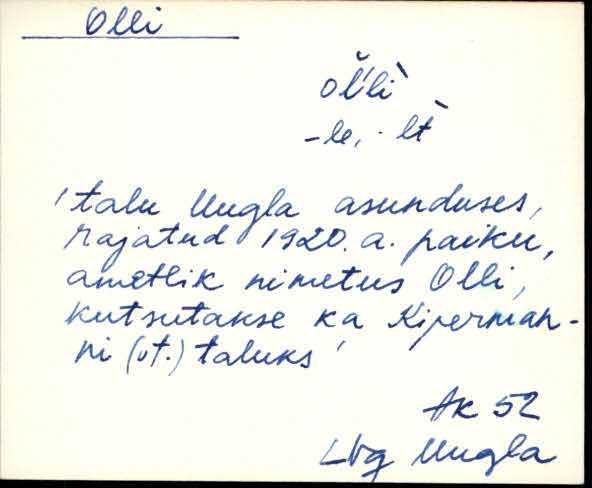 Olli
ol̆'li`
-le, -lt`
'talu Uugla asunduses,
rajatud 1920. a. paiku,
ametlik nimetus Olli,
kutsutakse ka Kiperman-
ni (vt.) taluks'
AK 52
Lbg Uugla